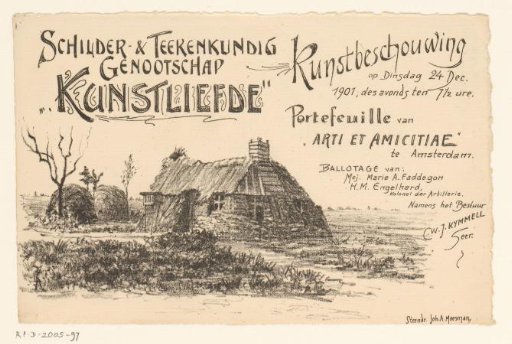 SCHILDER- & TEEKENKUNDIG
GENOOTSCHAP
„KUNSTLIEFDE"
Kunstbeschouwing
op Dinsdag 24 Dec.
1901, des avonds ten 7½ ure.
Portefeuille van
„ARTI ET AMICITIAE"
te Amsterdam.
BALLOTAGE van:
Mej. Marie A. Faddegon
H.M. Engelhard,
Kolonel der Artillerie.
Namens het Bestuur
C.W.J. KYMMELL
Secr.
Steendr. Joh. A. Moesman.
R.P-D-2005-97